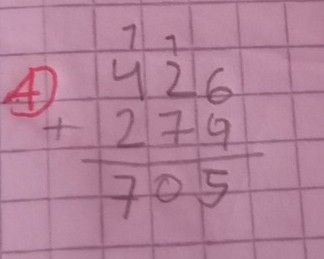 1 1
4 426
+ 279
705